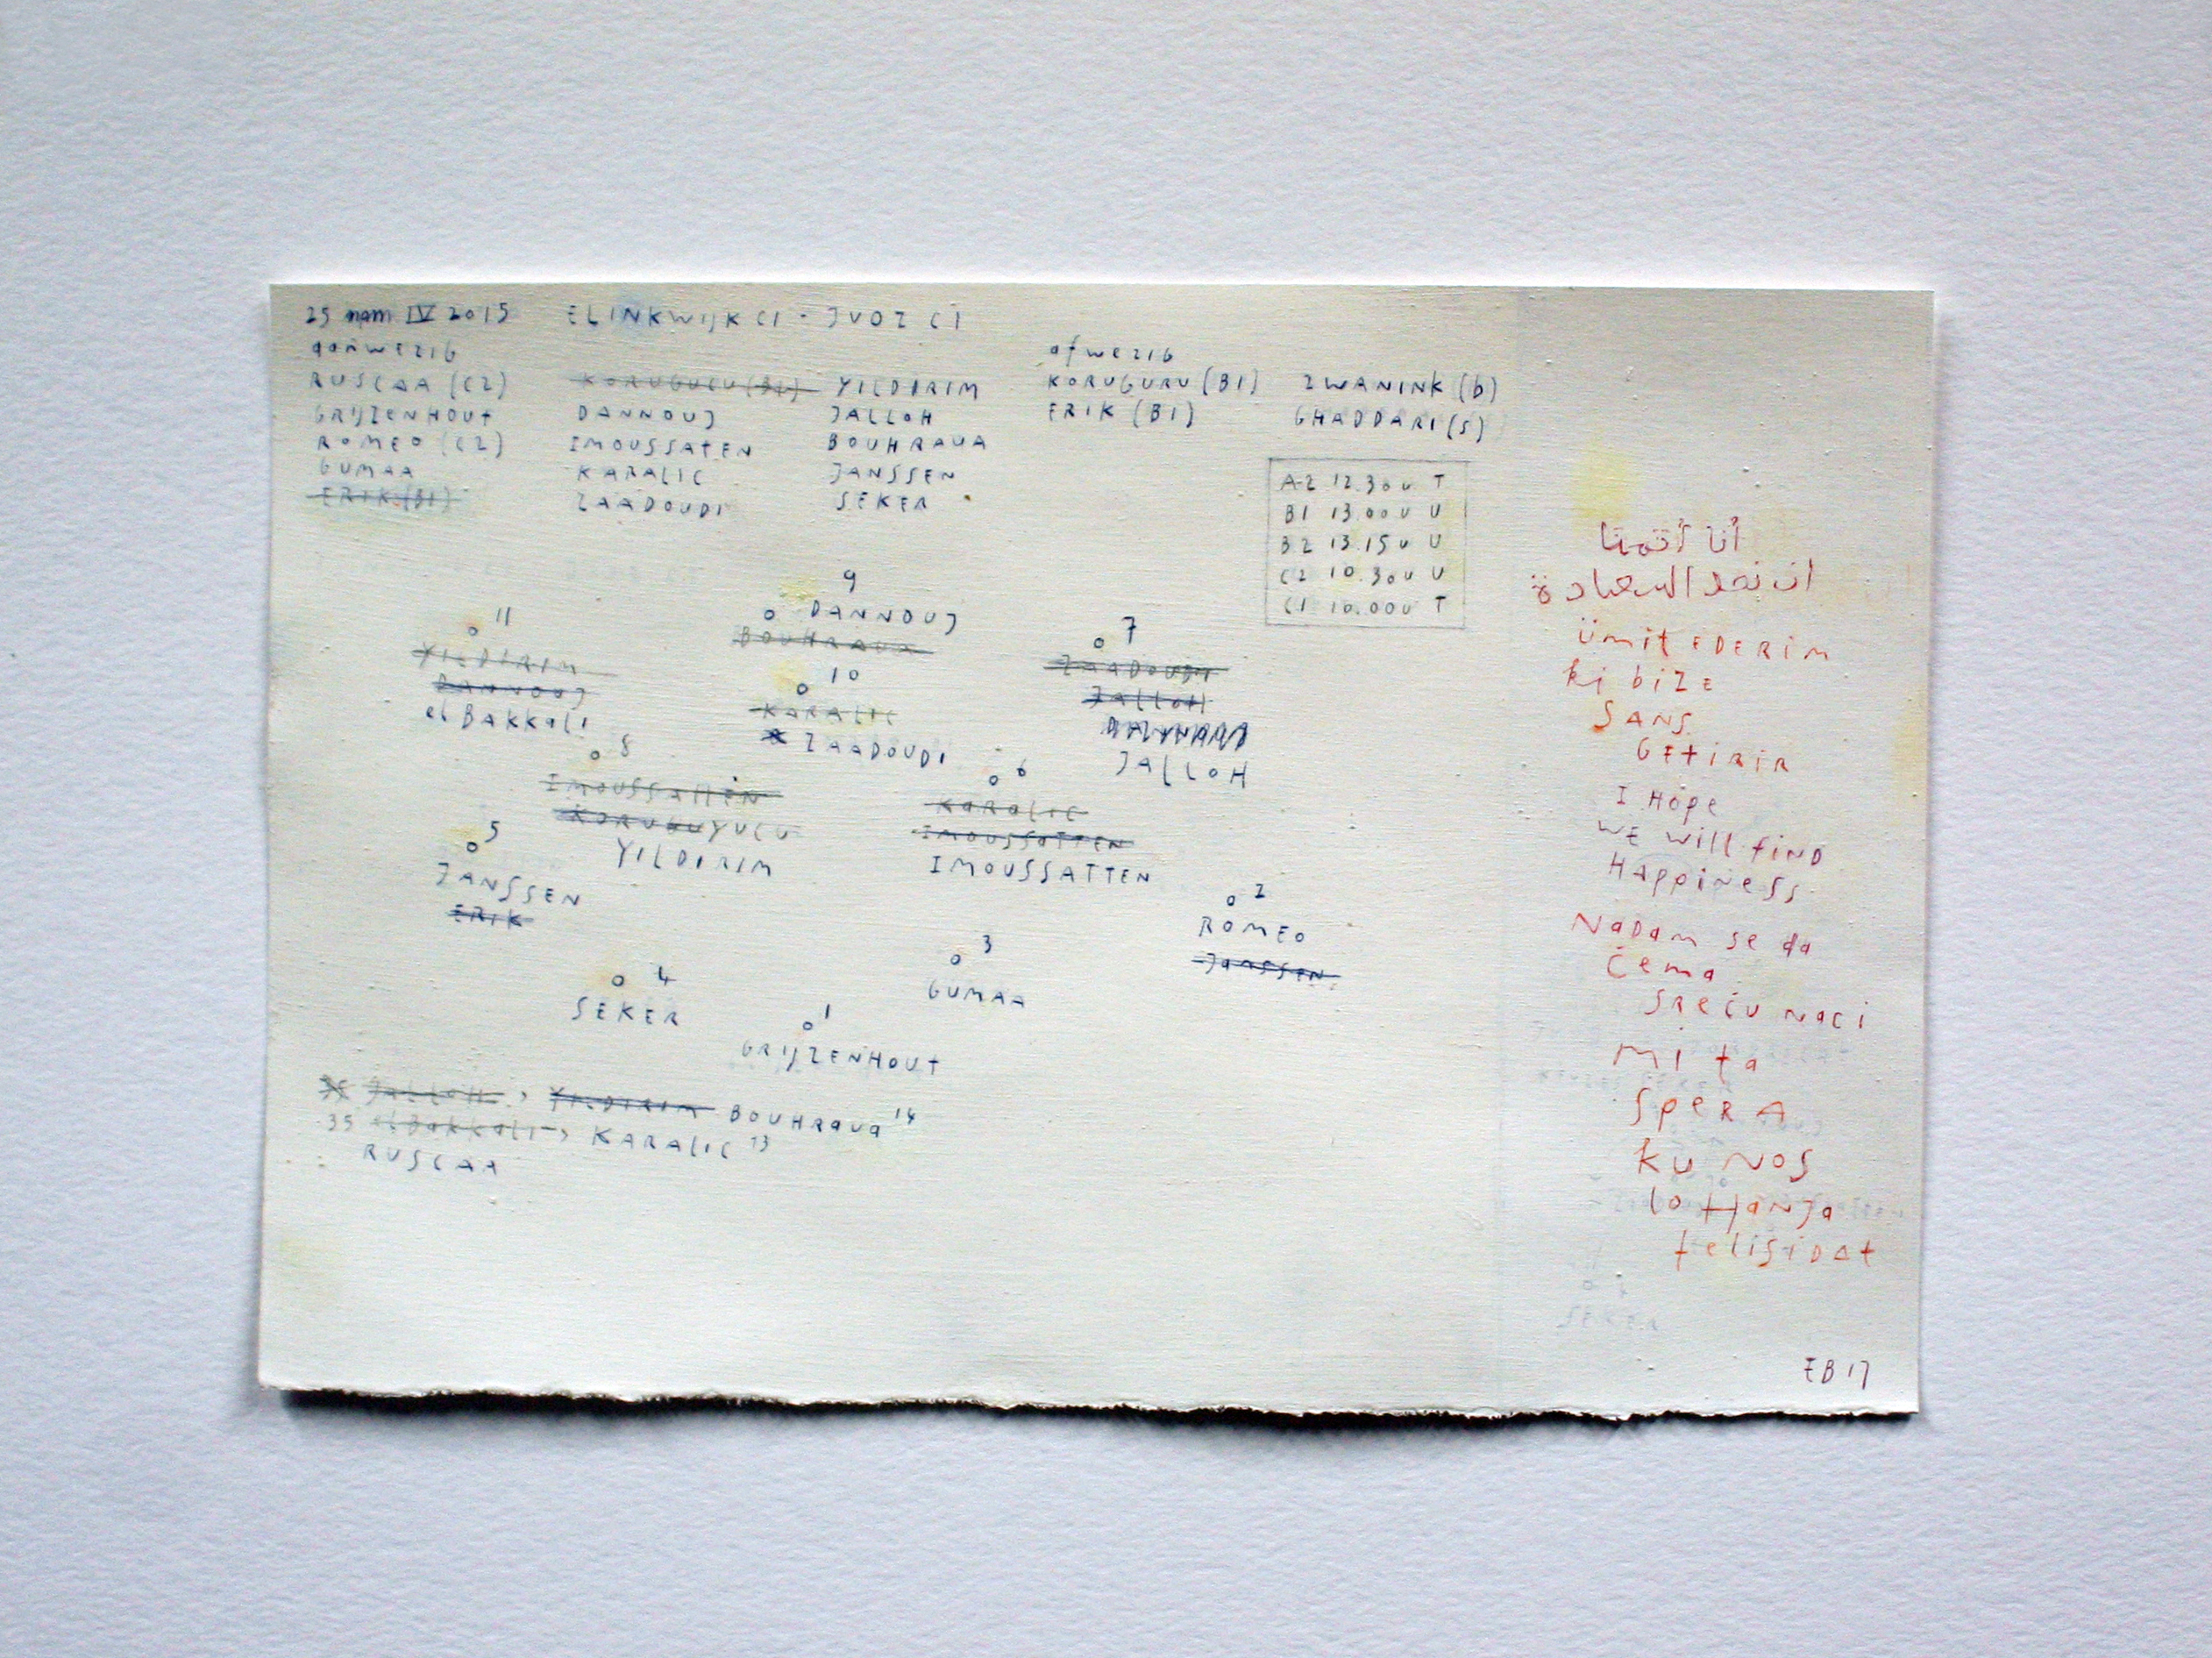 25 IV 2015 ELINKWIJK C1 - JVOZ C1
aanwezig
RUSCAA (C2)
GRIJZENHOUT
ROMEO (C2)
GUMAA
ERIK (B1)
KORUGUCU (B1)
DANNOUJ
IMOUSSATEN
KARALIC
ZAADOUDI
YILDIRIM
JALLOH
BOUHRAUA
JANSSEN
SEKER
afwezig
KORUGURU (B1)
ERIK (B1)
ZWANINK (b)
GHADDARI (S)
A2 12.30u T
B1 13.00u U
B2 13.15u U
C2 10.30u U
C1 10.00u T
9
DANNOUJ
BOUHRAUA
11
YILDIRIM
DANNOUJ
el BAKKALI
7
ZAADOUDI
JALLOH
JALLOH
10
KARALIC
ZAADOUDI
8
IMOUSSATTEN
KORUGUYUCU
YILDIRIM
6
KARALIC
IMOUSSATTEN
IMOUSSATTEN
5
JANSSEN
ERIK
2
ROMEO
JANSSEN
3
GUMAA
4
SEKER
1
GRIJZENHOUT
JALLOH > YILDIRIM BOUHRAUA 14
35 el BAKKALI > KARALIC 13
RUSCAA
أنا أتمنا
ان نجد السعادة
ümit EDERim
ki biZE
SANS
GETiRiR
I HOpe
WE will fiND
HAppiNeSS
NaDam se da
Čema
SReĆu naĆi
Mi ta
SpeRA
ku NOS
lo HaNJa
felisiDAt
EB 17